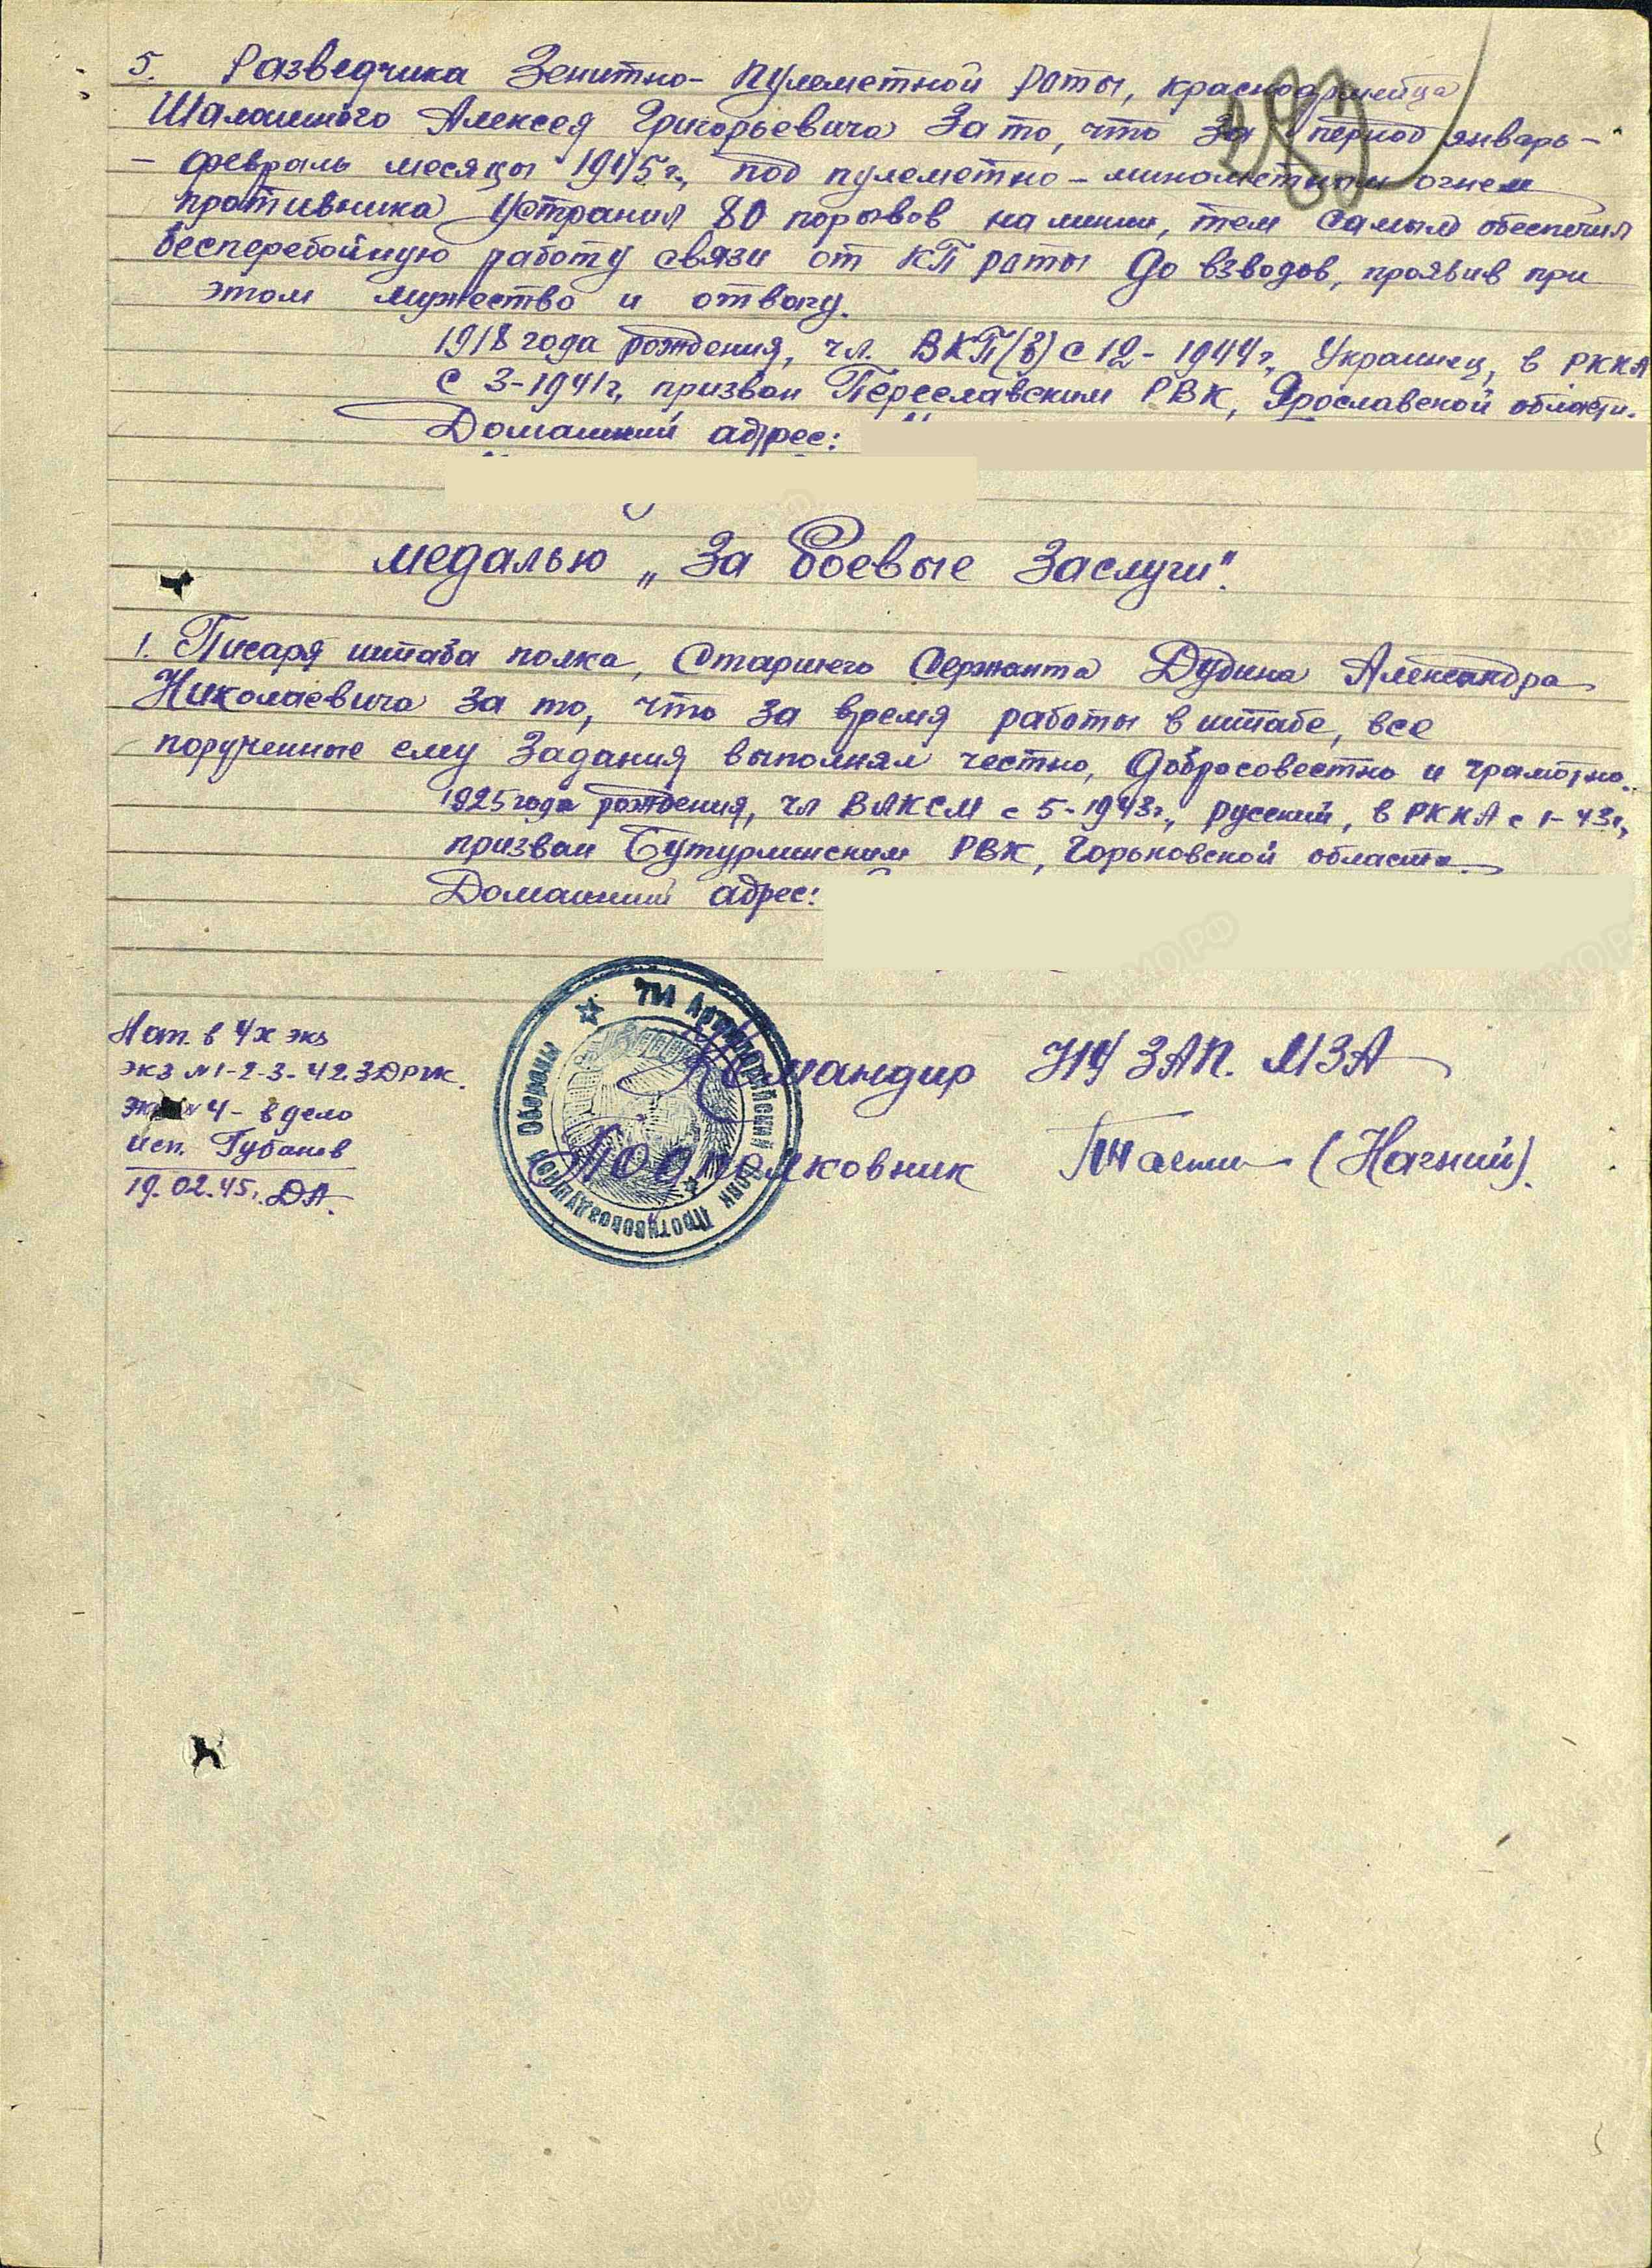 5. Разведчика Зенитно-пулеметной роты, красноармейца
Шалашного Алексея Григорьевича За то, что За период январь-
- февраль месяцы 1945г., под пулеметно-минометным огнем
противника Устранил 80 порывов на линии, тем самым обеспечил
бесперебойную работу связи от КП роты до взводов, проявив при
этом мужество и отвагу.
1918 года рождения, чл. ВКП(б) с 12-1944г., Украинец, в РККА
с 3-1941г, призван Переславским РВК, Ярославской области.
Домашний адрес:
медалью „За боевые Заслуги".
1. Писаря штаба полка, Старшего Сержанта Дудина Александра
Николаевича За то, что за время работы в штабе, все
порученные ему Задания выполнял честно, добросовестно и грамотно.
1925 года рождения, чл ВЛКСМ с 5-1943г., русский, в РККА с 1-43г,
призван Бутурлинским РВК, Горьковской области.
Домашний адрес:
Командир ЗАП. МЗА
Подполковник (Нагний).
От. в 4х экз
экз №1-2-3-
экз №4- в дело
исп.
19.02.45г.
Артиллерийский Полк Противовоздушной Обороны